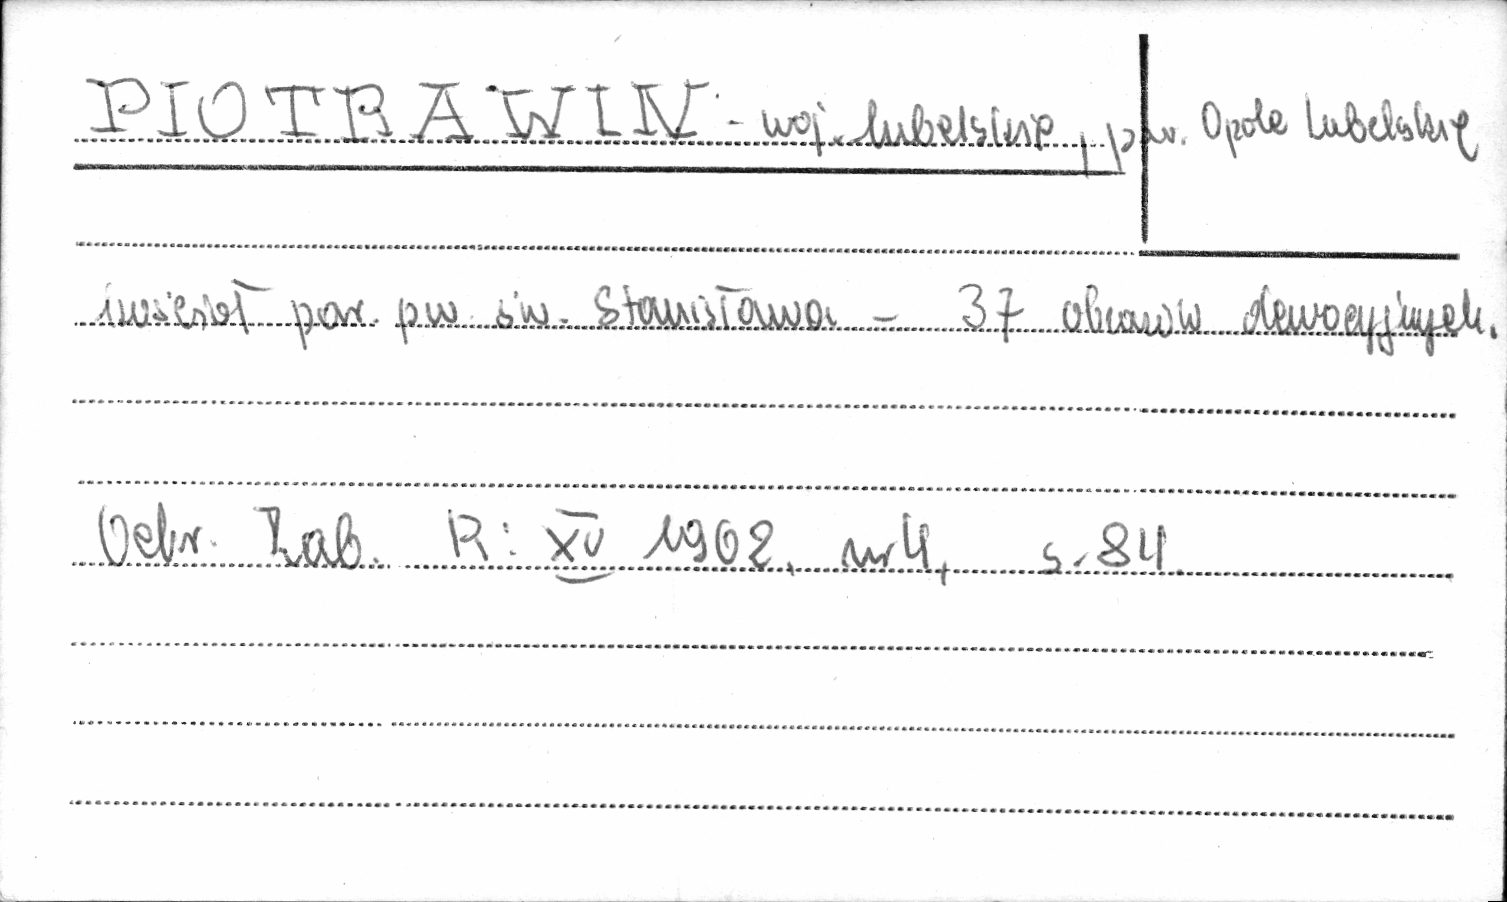 PIOTRAWIN - woj. lubelskie, pow. Opole Lubelskie
kościół par. pw. św. Stanisława - 37 obrazów dewocyjnych.
Ochr. Zab. R: XV 1962, nr 4, s. 84.